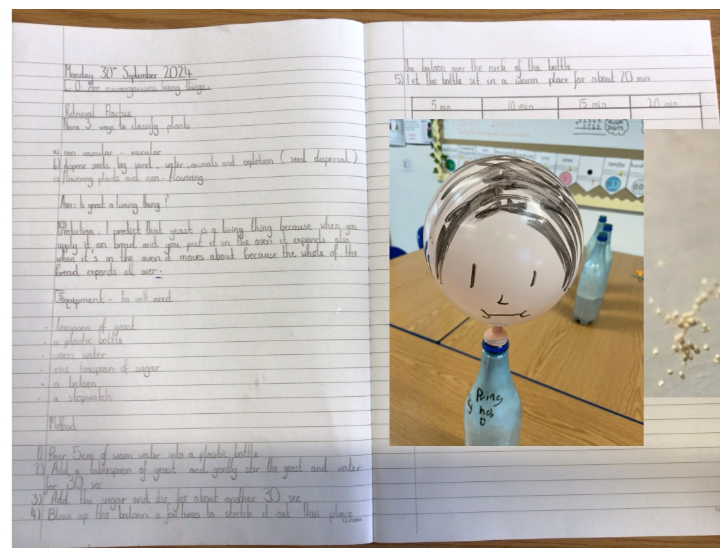 Monday 30th September 2024
L.O: Are microorganisms living things.
Retrieval Practice
Name 3 ways to classify plants
a) non vascular - vascular
b) disperse seeds by wind, water, animals and explotion ( seed dispersal)
c) flowering plants and non - flowering
Aim: Is yeast a living thing?
Prediction: I predict that yeast is a living thing because when you
apply it on bread and you put it in the oven it expands also
when it's in the oven it moves about because the whole of the
bread expands all over.
Equipment - You will need
• teaspoon of yeast
• a plastic bottle
• warm water
• one teaspoon of sugar
• a baloon
• a stopwatch
Method
1) Pour 5cm of warm water into a plastic bottle
2) Add a tablespoon of yeast and gently stir the yeast and water
for 30 sec
3) Add the sugar and stir for about another 30 sec
4) Blow up the baloon a few times to stretch it out then place
the baloon over the neck of the bottle
5) Let the bottle sit in a warm place for about 20 min
5 min 10 min 15 min 20 min